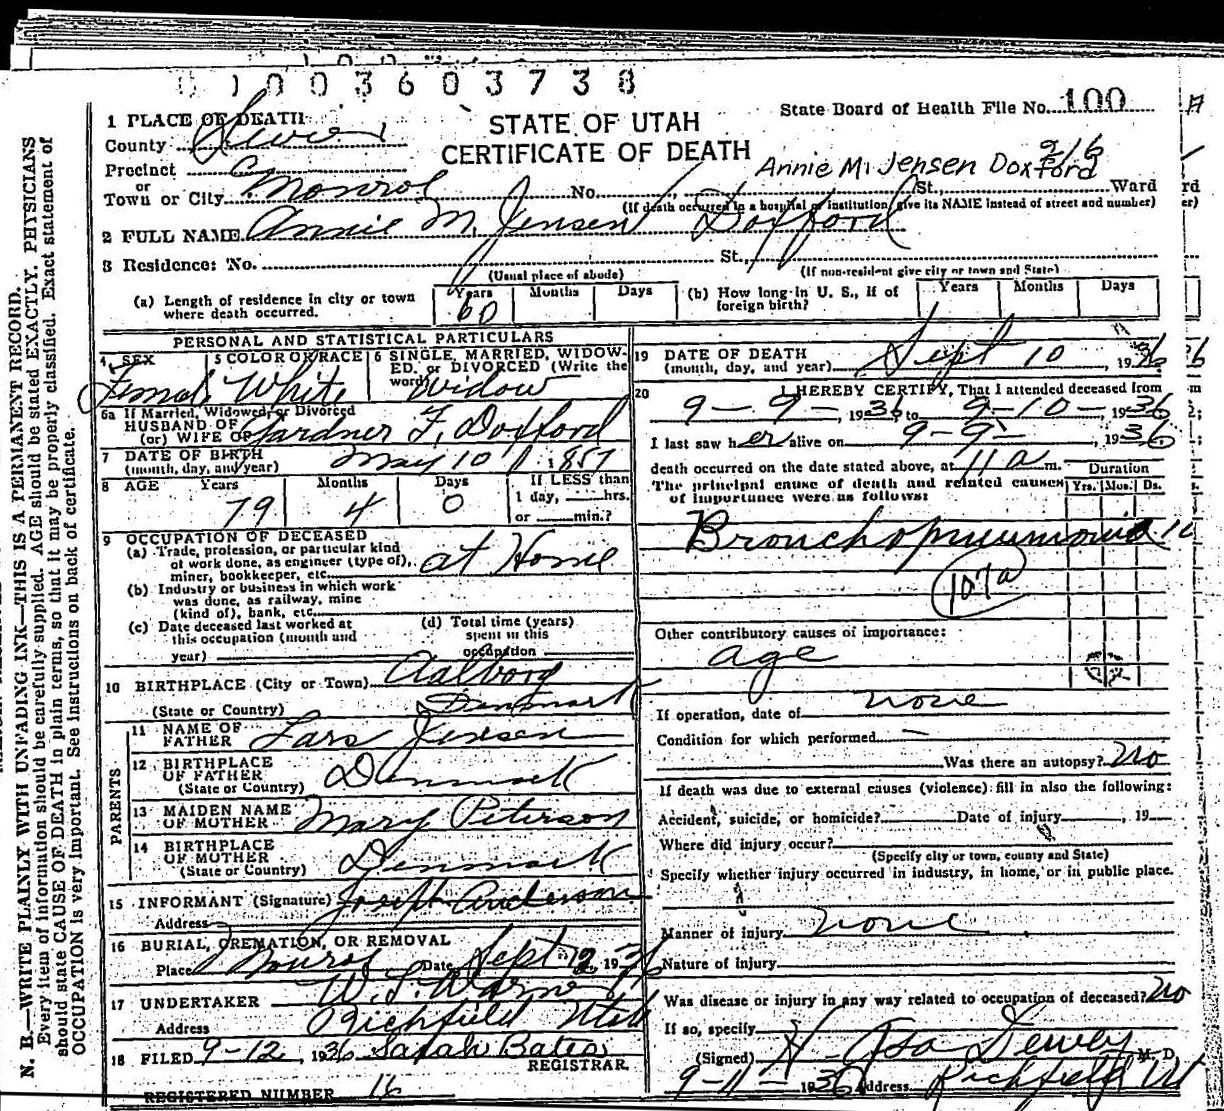 0 1 0 0 3 6 0 3 7 3 8
State Board of Health File No. 100
1 PLACE OF DEATH
County Sevier
STATE OF UTAH
CERTIFICATE OF DEATH
Precinct
Annie M. Jensen Doxford
or
Town or City Monroe No. St., Ward
(If death occurred in a hospital or institution, give its NAME instead of street and number)
2 FULL NAME Annie M. Jensen Doxford
3 Residence: No. St.,
(Usual place of abode) (If non-resident give city or town and State)
(a) Length of residence in city or town where death occurred. Years 60 Months Days
(b) How long in U. S., if of foreign birth? Years Months Days
PERSONAL AND STATISTICAL PARTICULARS
4 SEX Female
5 COLOR OR RACE White
6 SINGLE, MARRIED, WIDOWED, or DIVORCED (Write the word) Widow
6a If Married, Widowed, or Divorced
HUSBAND OF
(or) WIFE OF Gardner F. Doxford
7 DATE OF BIRTH
(month, day, and year) May 10 1857
8 AGE Years 79 Months 4 Days 0 If LESS than
1 day, hrs.
or min.?
9 OCCUPATION OF DECEASED
(a) Trade, profession, or particular kind
of work done, as engineer (type of),
miner, bookkeeper, etc. at Home
(b) Industry or business in which work
was done, as railway, mine
(kind of), bank, etc.
(c) Date deceased last worked at
this occupation (month and
year)
(d) Total time (years)
spent in this
occupation
10 BIRTHPLACE (City or Town) Aalborg
(State or Country) Denmark
PARENTS
11 NAME OF
FATHER Lars Jensen
12 BIRTHPLACE
OF FATHER
(State or Country) Denmark
13 MAIDEN NAME
OF MOTHER Mary Peterson
14 BIRTHPLACE
OF MOTHER
(State or Country) Denmark
15 INFORMANT (Signature) Joseph Anderson
Address
16 BURIAL, CREMATION, OR REMOVAL
Place Monroe Date Sept 12 1936
17 UNDERTAKER
Address Richfield Utah
18 FILED 9-12, 1936 Sarah Bates
REGISTRAR.
REGISTERED NUMBER 16
19 DATE OF DEATH
(month, day, and year) Sept 10, 1936
20 I HEREBY CERTIFY, That I attended deceased from
9-9-, 1936 to 9-10-, 1936
I last saw her alive on 9-9-, 1936
death occurred on the date stated above, at 11 a m. Duration
The principal cause of death and related causes
of importance were as follows: Yrs. Mos. Ds.
Bronchopneumonia
107a
Other contributory causes of importance:
age
If operation, date of none
Condition for which performed —
Was there an autopsy? No
If death was due to external causes (violence) fill in also the following:
Accident, suicide, or homicide? Date of injury , 19
Where did injury occur?
(Specify city or town, county and State)
Specify whether injury occurred in industry, in home, or in public place.
Manner of injury none
Nature of injury
Was disease or injury in any way related to occupation of deceased? No
If so, specify
(Signed) H. Asa Dewey M. D.
9-11-1936 Address Richfield Ut
N. B.—WRITE PLAINLY WITH UNFADING INK—THIS IS A PERMANENT RECORD.
Every item of information should be carefully supplied. AGE should be stated EXACTLY. PHYSICIANS
should state CAUSE OF DEATH in plain terms, so that it may be properly classified. Exact statement of
OCCUPATION is very important. See instructions on back of certificate.